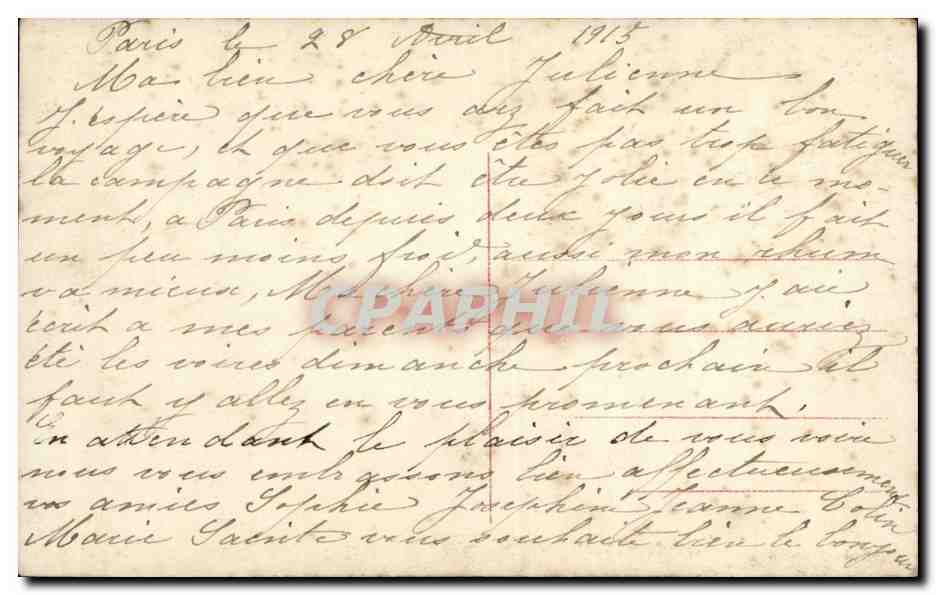 Paris le 28 Avril 1915
Ma bien chère Julienne
J'espère que vous avez fait un bon
voyage, et que vous êtes pas trop fatiguer
la campagne doit être Jolie en ce mo-
ment, a Paris depuis deux jours il fait
un peu moins froid, aussi mon rhum
va mieux, Ma chère Julienne j'ai
écrit a mes parents que vous auriez
été les voires dimanche prochain il
faut y allez en vous promenant.
En attendant le plaisir de vous voire
nous vous embrassons bien affectueusement
vos amies Sophie Josephine Jeanne Colin
Marie Sainte vous souhaite bien le bonjour
CPAPHIL